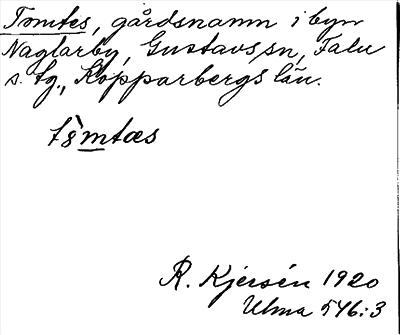 Tomtes, gårdsnamn i byn
Naglarby, Gustavs sn, Falu
s. tg., Kopparbergs län.
R. Kjersén 1920
Ulma 546:3